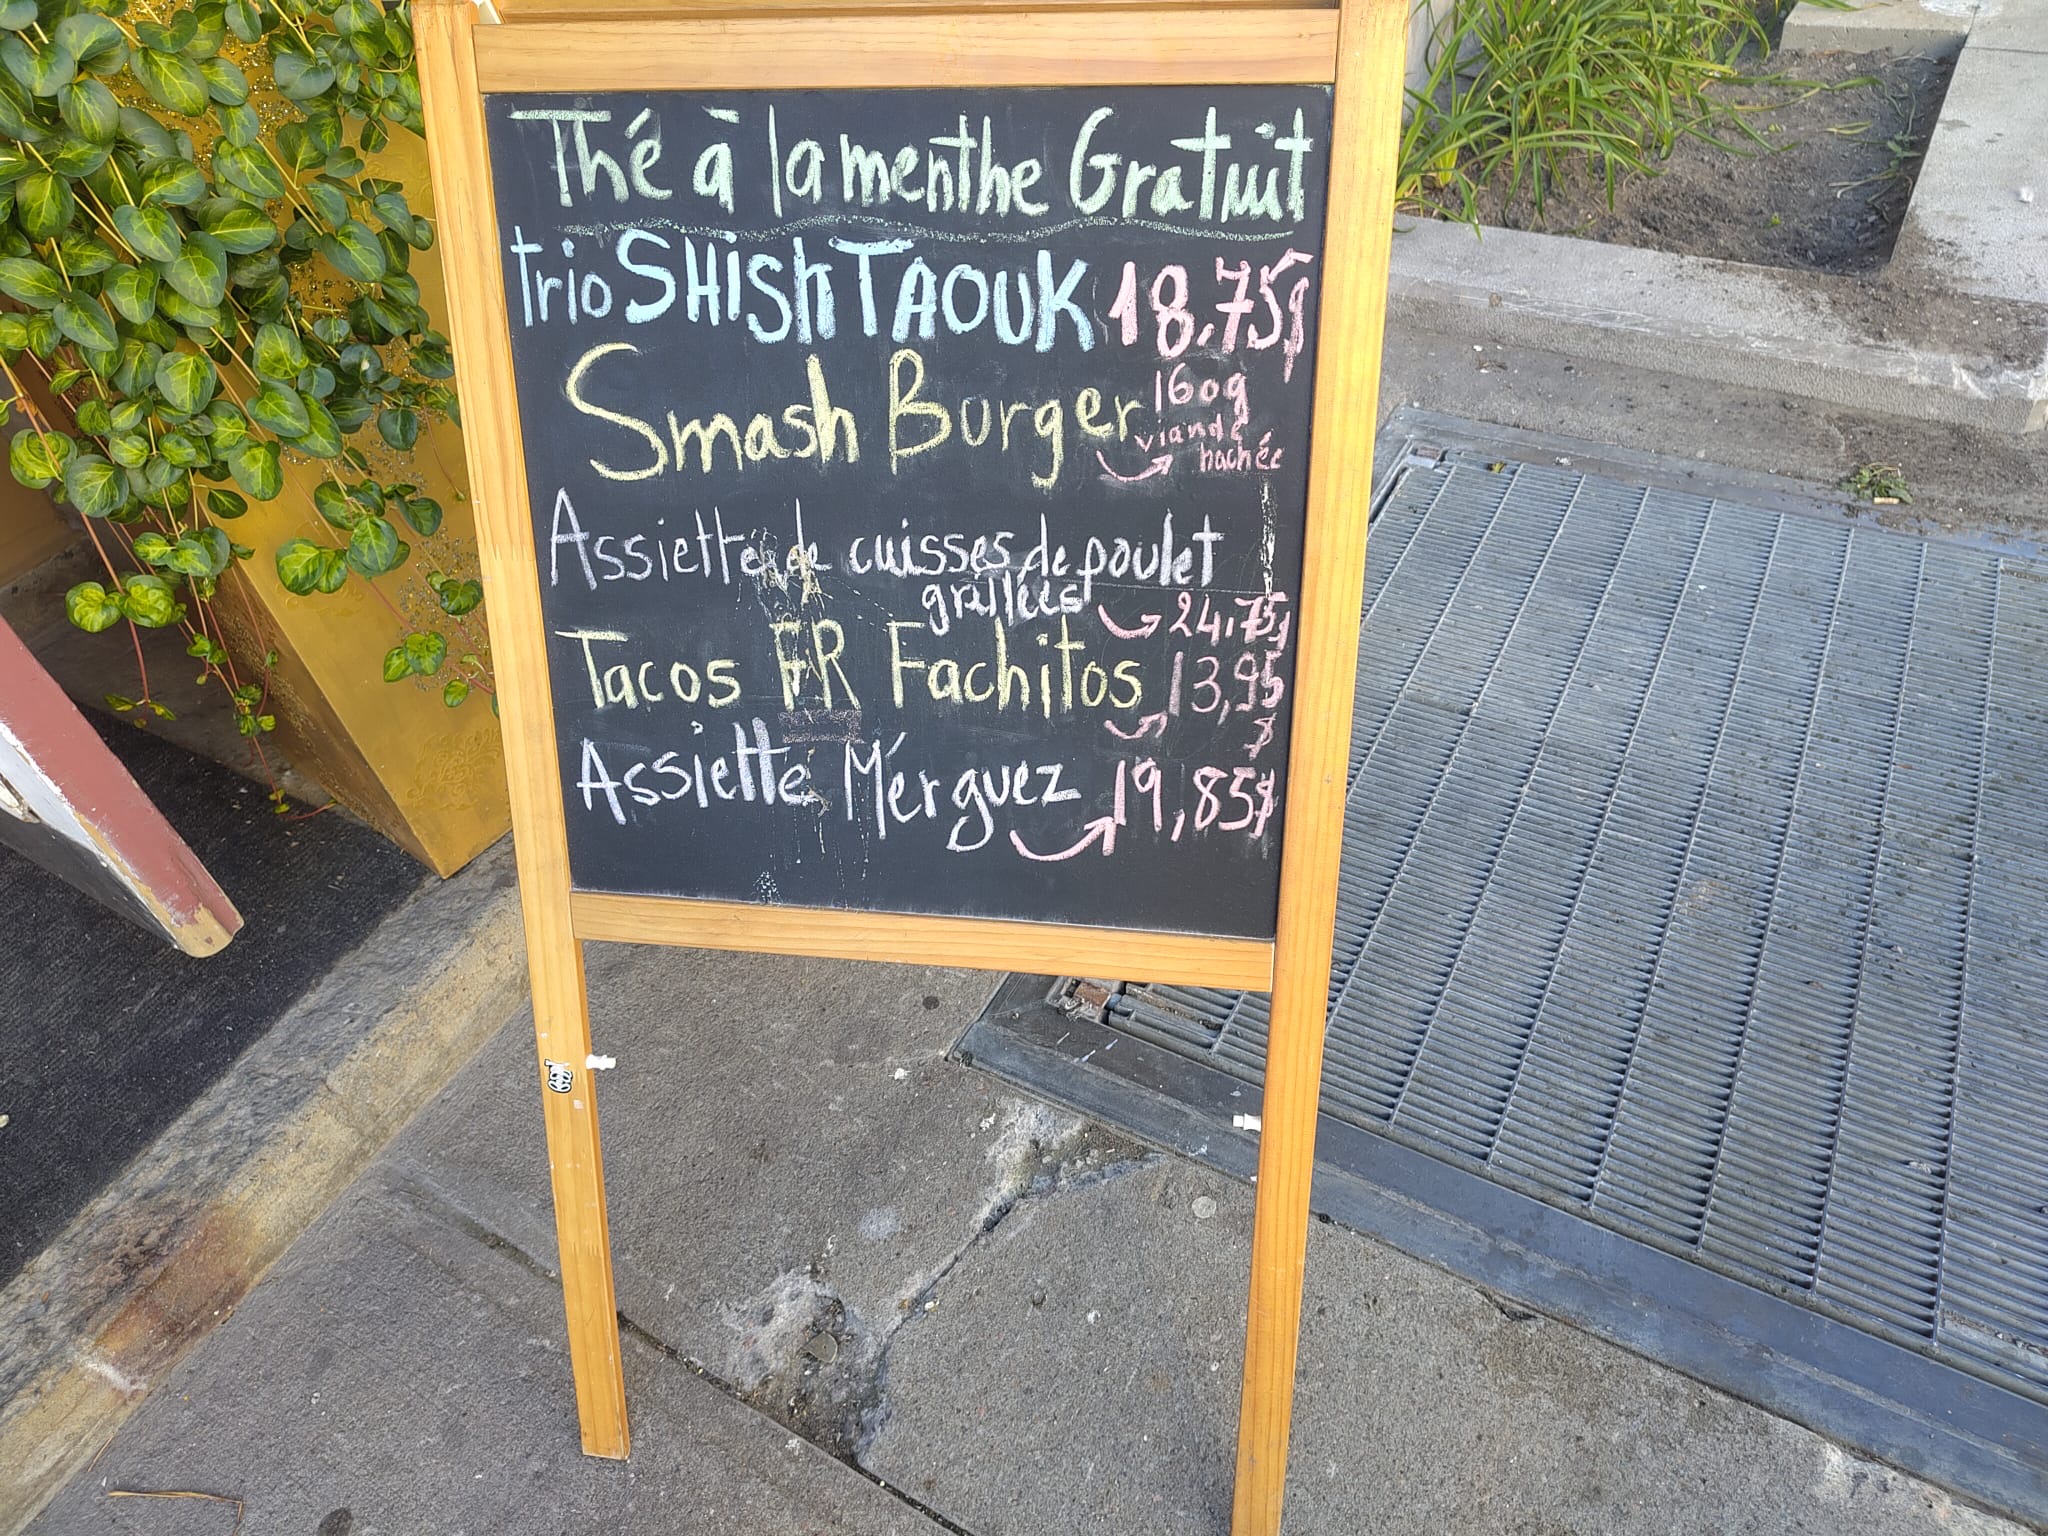 Thé à la menthe Gratuit
trio SHiSh TAOUK 18,75$
Smash Burger 160g
viande
hachée
Assiette de cuisses de poulet
grillées 24,75$
Tacos FR Fachitos 13,95
$
Assiette Mérguez 19,85$